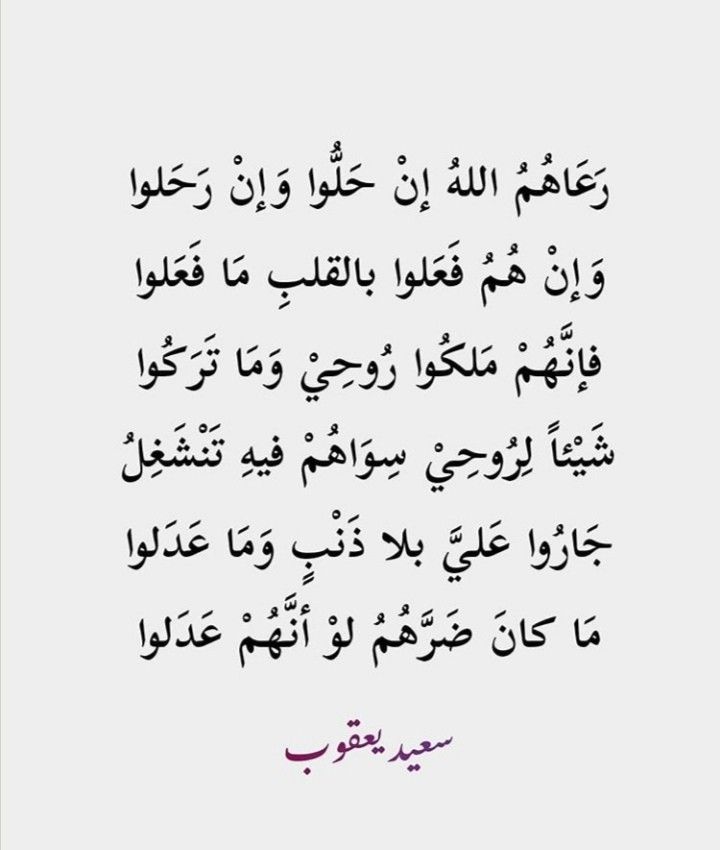 رَعَاهُمُ اللهُ إنْ حَلُّوا وَإنْ رَحَلوا
وَإنْ هُمُ فَعَلوا بالقلبِ مَا فَعَلوا
فإنَّهُمْ مَلكُوا رُوحِيْ وَمَا تَرَكُوا
شَيْئاً لِرُوحِيْ سِوَاهُمْ فيهِ تَنْشَغِلُ
جَارُوا عَليَّ بلا ذَنْبٍ وَمَا عَدَلوا
مَا كانَ ضَرَّهُمُ لوْ أنَّهُمْ عَدَلوا
سعيد يعقوب